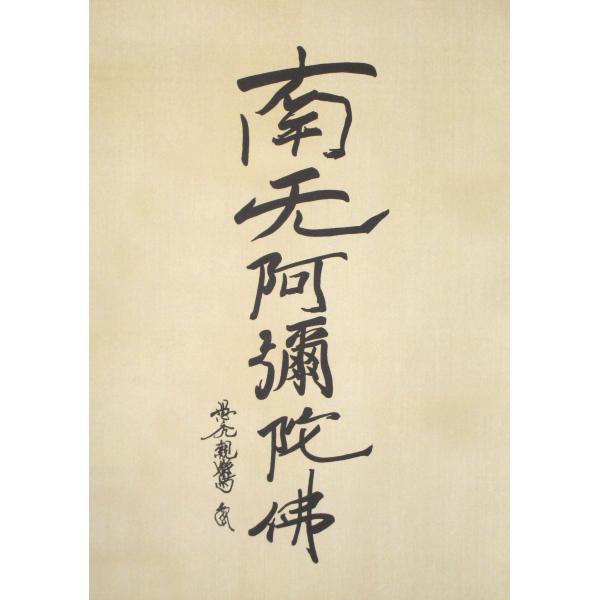 南无阿彌陀佛
愚禿親鸞